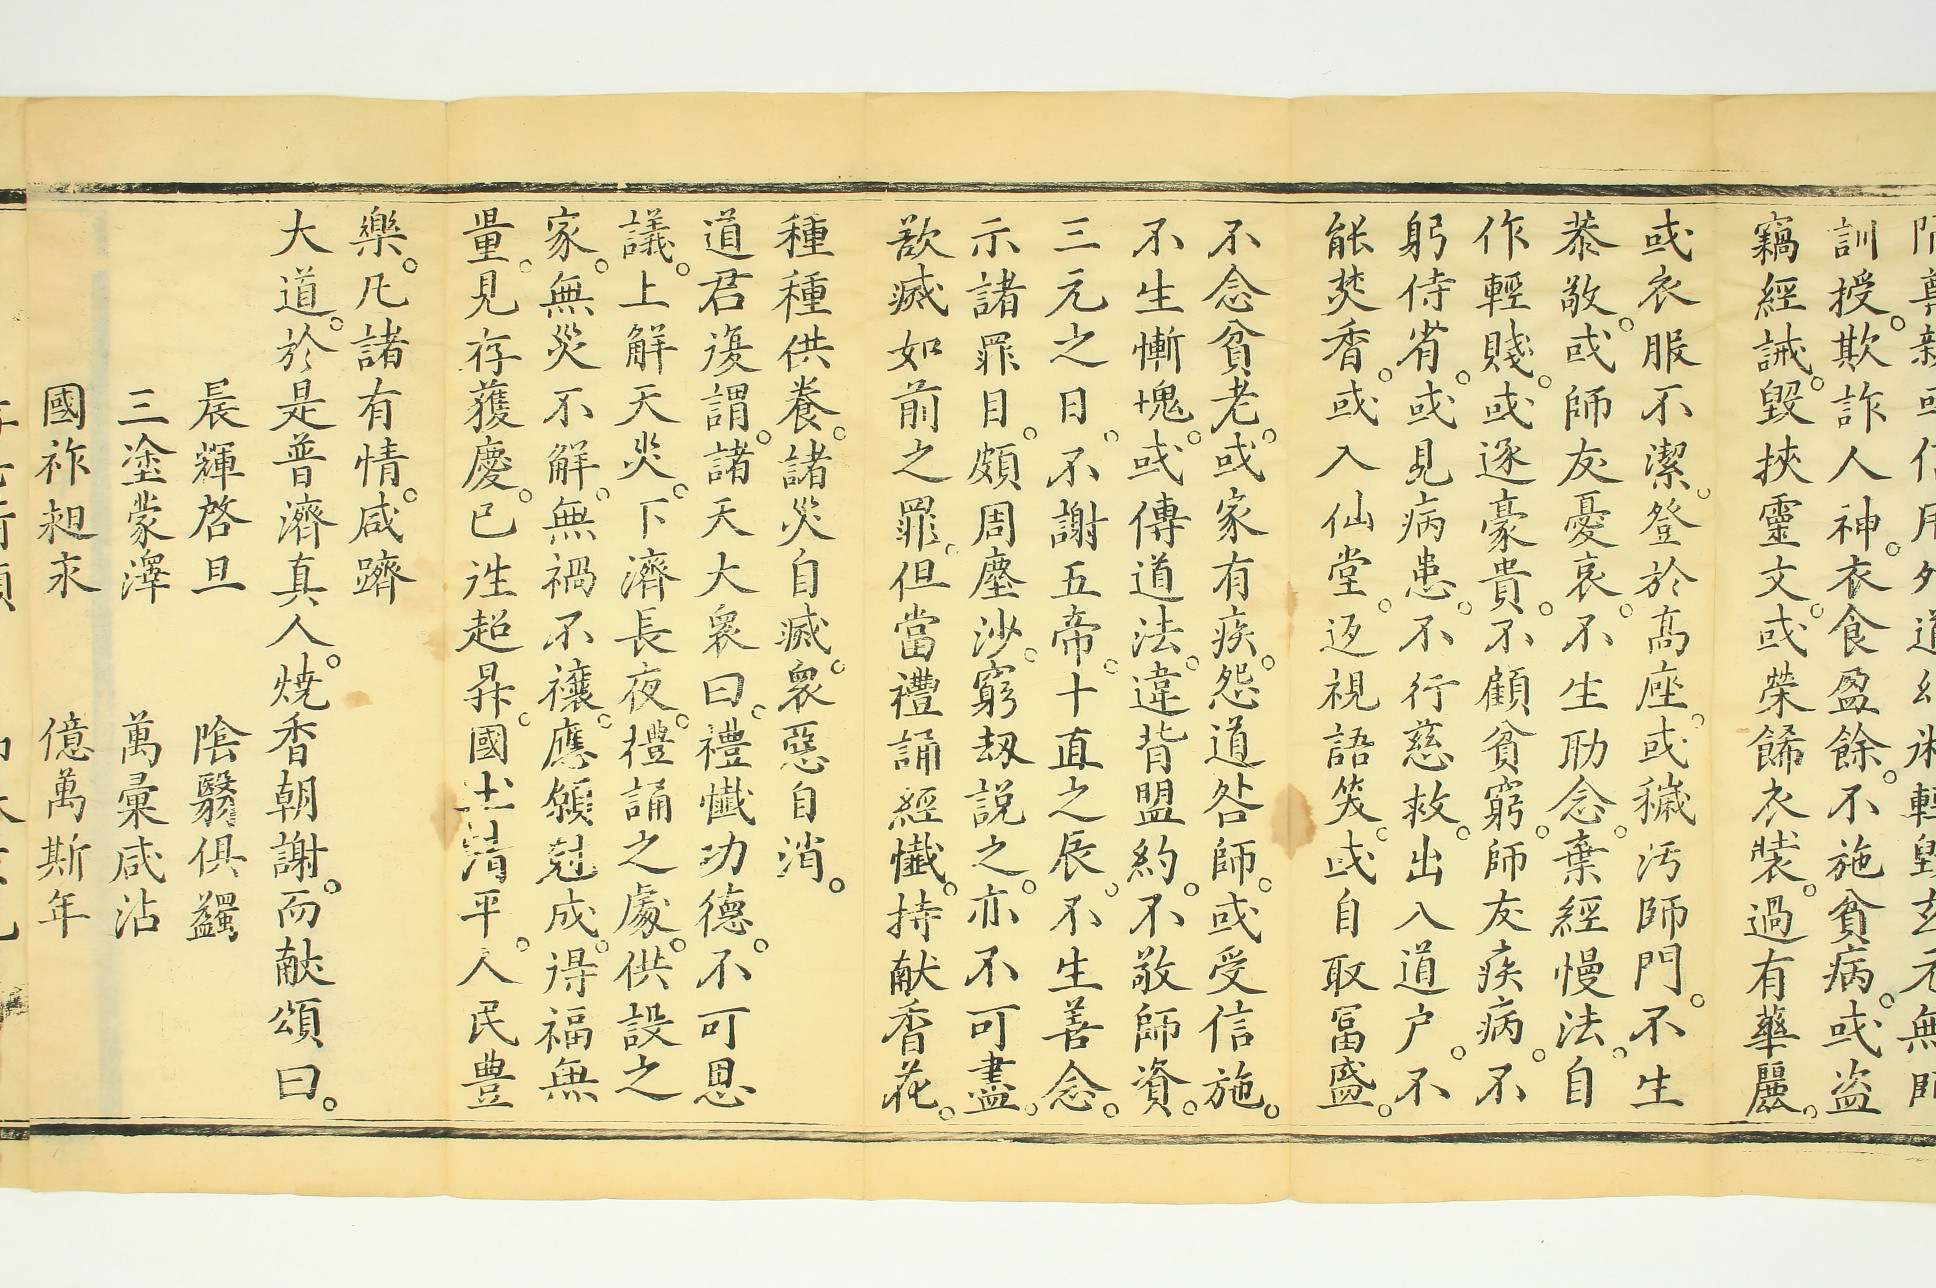 訓授。欺詐人神。衣食盈餘。不施貧病。或盗
竊經誡。毀挾靈文。或榮餙衣裝。過有華麗。
或衣服不潔。登於髙座。或穢汚師門。不生
恭敬。或師友憂哀。不生助念。棄經慢法。自
作輕賤。或逐豪貴。不顧貧窮。師友疾病。不
躬侍省。或見病患。不行慈救。出入道户。不
能焚香。或入仙堂。返視語笑。或自取冨盛。
不念貧老。或家有疾。怨道咎師。或受信施。
不生慚愧。或傳道法。違背盟約。不敬師資。
三元之日。不謝五帝。十直之辰。不生善念。
示諸罪目。頗周塵沙。窮刼説之。亦不可盡。
欲滅如前之罪。但當禮誦經懺。持献香花。
種種供養。諸災自滅。衆惡自消。
道君復謂。諸天大衆曰。禮懺功德。不可思
議。上解天災。下濟長夜。禮誦之處。供設之
家。無災不解。無禍不禳。應願尅成。得福無
量。見存獲慶。已往超昇。國土清平。人民豊
樂。凡諸有情。咸躋
大道。於是普濟真人。燒香朝謝。而献頌曰。
晨輝啓旦 陰翳俱蠲
三塗蒙澤 萬彚咸沾
國祚昶永 億萬斯年